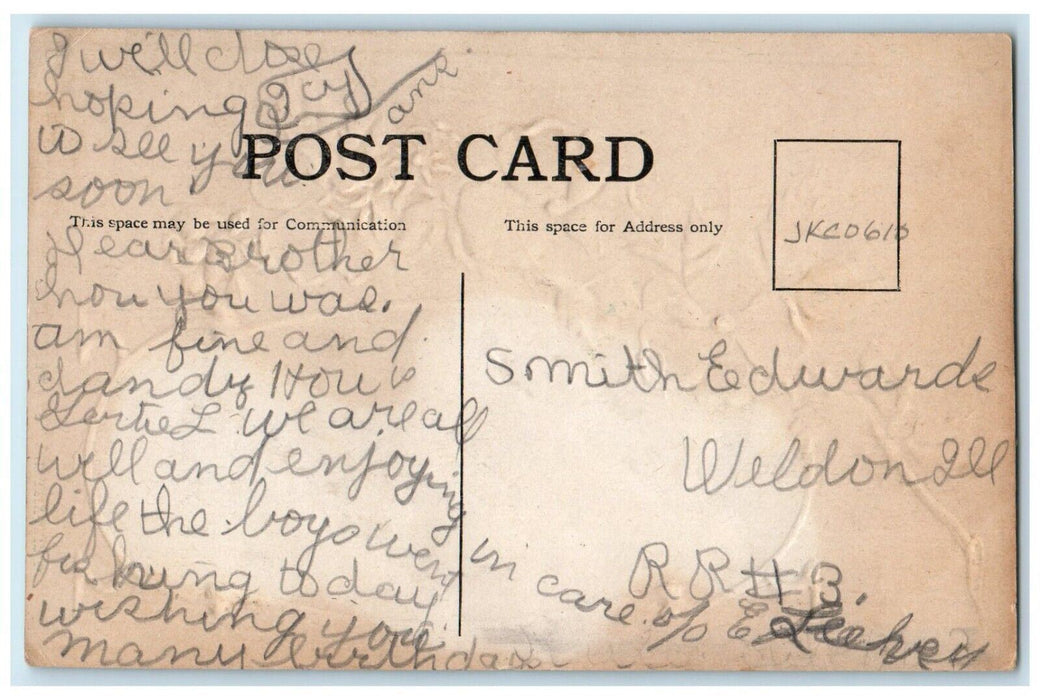 I will close
hoping
to see you
soon
Joy
ans.
POST CARD
This space may be used for Communication
This space for Address only
JKC0610
Dear Brother
how you was.
am fine and
dandy How is
Gertie L. we are all
well and enjoying
life the boys went
fishing today
wishing you
many birthdays
Smith Edwards
Weldon Ill
RR # 3.
in care of
E